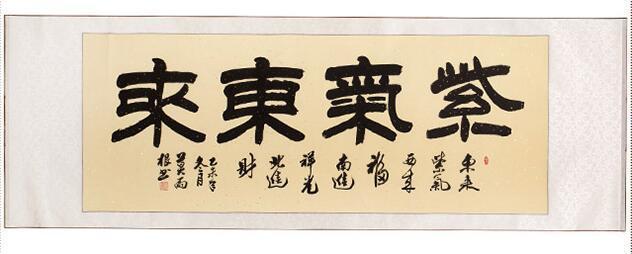 紫氣東来
東来
紫氣
西来
福
南進
祥光
北進
財
乙未年
冬月